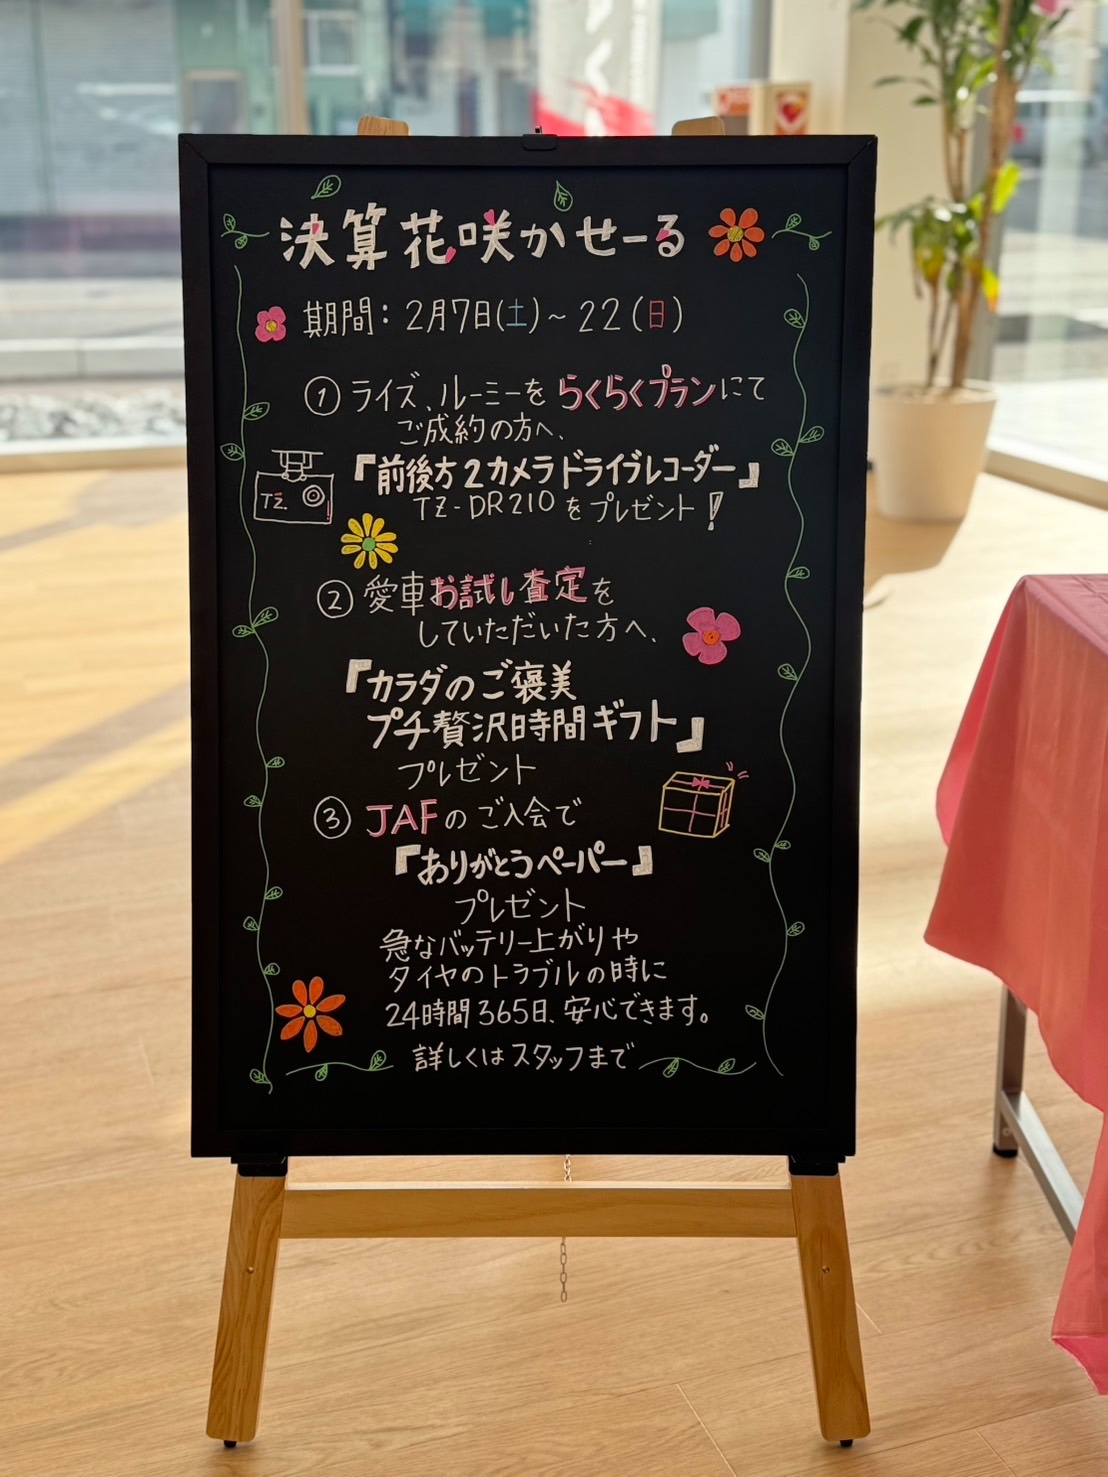 決算花咲かせーる
期間：2月7日(土)～22(日)
① ライズ、ルーミーをらくらくプランにて
ご成約の方へ、
『前後方2カメラドライブレコーダー』
TZ-DR210をプレゼント!
TZ.
② 愛車お試し査定を
していただいた方へ、
『カラダのご褒美
プチ贅沢時間ギフト』
プレゼント
③ JAFのご入会で
『ありがとうペーパー』
プレゼント
急なバッテリー上がりや
タイヤのトラブルの時に
24時間365日、安心できます。
詳しくはスタッフまで